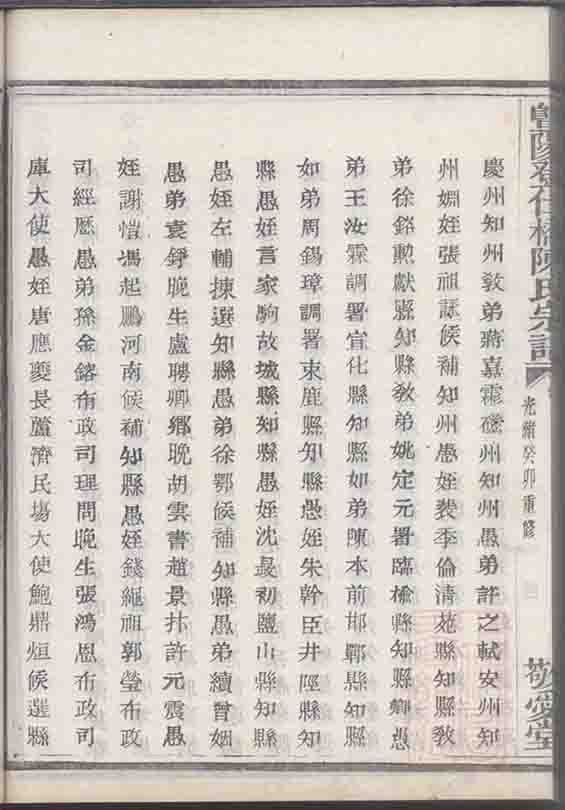 暨陽孝任橋陳氏宗譜
光緒癸卯重修
敬愛堂
慶州知州敎弟蔣嘉霖磁州知州愚弟許之軾安州知
州姻姪張祖詠候補知州愚姪裴季倫淸苑縣知縣敎
弟徐鉻勲獻縣知縣敎弟姚定元署臨楡縣知縣鄉愚
弟王汝霖調署宣化縣知縣如弟陳本前邯鄲縣知縣
如弟周錫璋調署束鹿縣知縣愚姪朱幹臣井陘縣知
縣愚姪言家駒故城縣知縣愚姪沈晸初鹽山縣知縣
愚姪左輔揀選知縣愚弟徐鄂候補知縣愚弟續曾姻
愚弟袁錚晚生盧聘卿鄉晚胡雲書趙景抃許元震愚
姪謝愷馮起鵬河南候補知縣愚姪錢繩祖郭瑩布政
司經歷愚弟孫金鎔布政司理問晚生張鴻恩布政司
庫大使愚姪唐應夔長蘆濟民塲大使鮑鼎烜候選縣